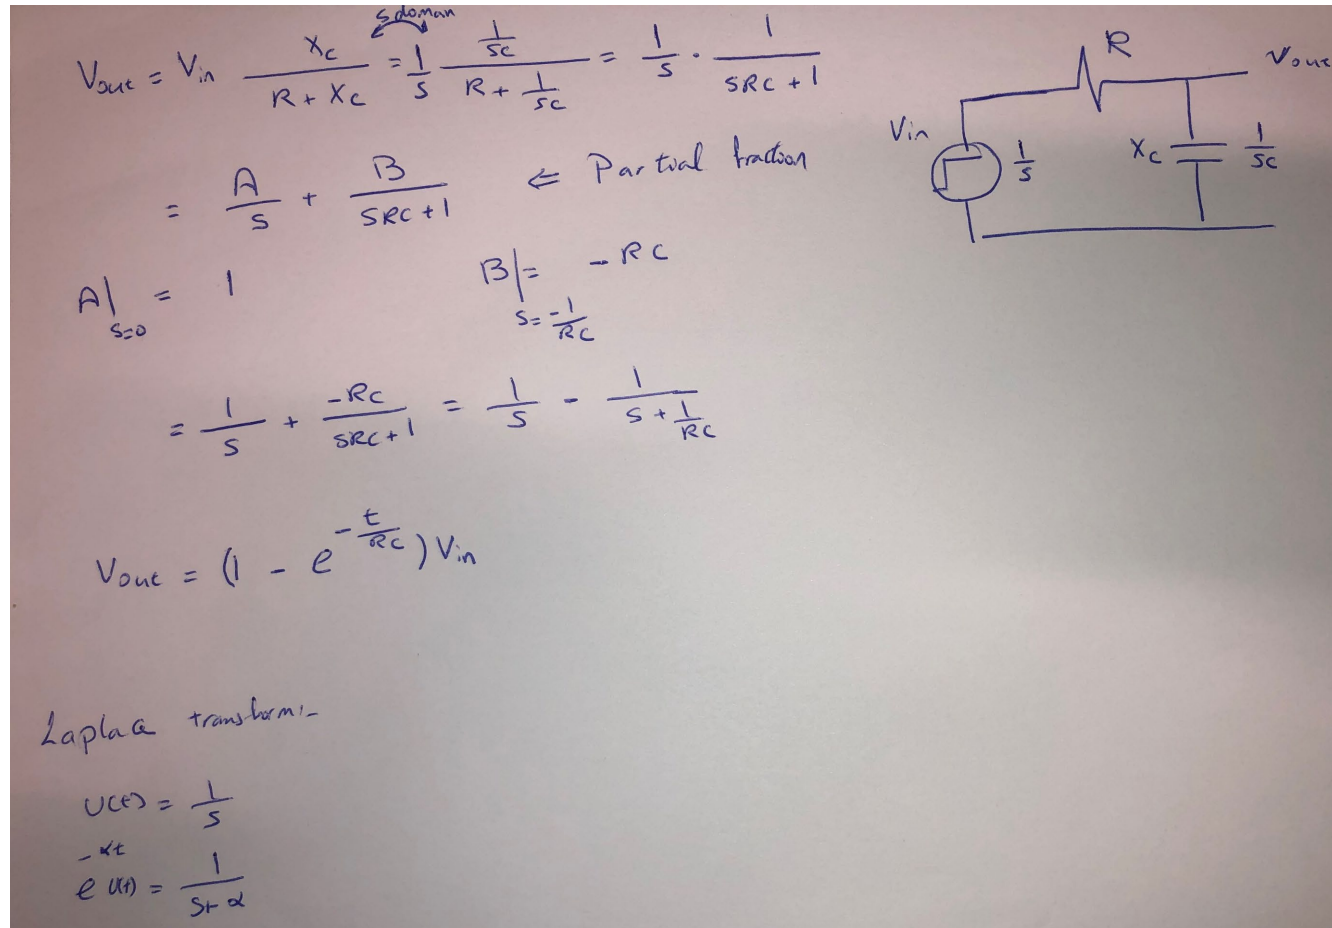 s doman
Vout = Vin Xc / (R + Xc) = 1/s (1/sc) / (R + 1/sc) = 1/s · 1 / (sRC + 1)
= A/s + B / (sRC + 1) ⇐ Partial fraction
A|s=0 = 1 B|s=-1/RC = -RC
= 1/s + -RC / (sRC + 1) = 1/s - 1 / (s + 1/RC)
Vout = (1 - e^(-t/RC)) Vin
Laplace transform:-
U(t) = 1/s
e^(-αt) U(t) = 1 / (s+α)
R
Vout
Vin
1/s
Xc
1/sc